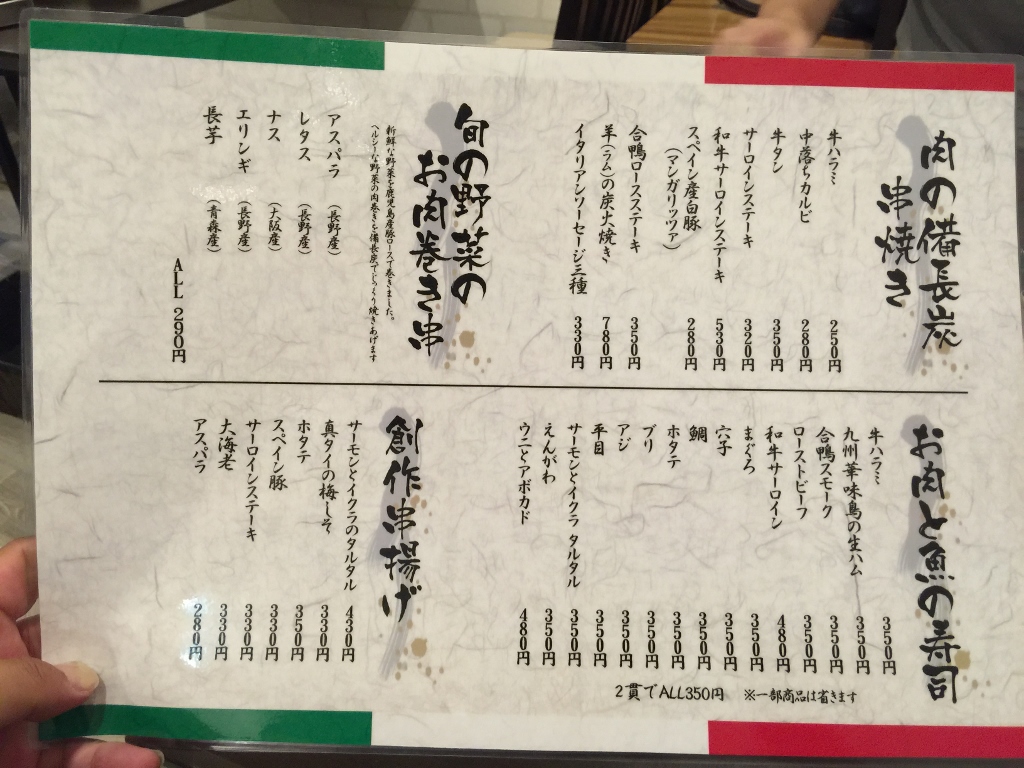 肉の備長炭
串焼き
牛ハラミ 250円
中落ちカルビ 280円
牛タン 350円
サーロインステーキ 320円
和牛サーロインステーキ 530円
スペイン産白豚 280円
(マンガリッツァ)
合鴨ロースステーキ 350円
羊(ラム)の炭火焼き 780円
イタリアンソーセージ三種 330円
旬の野菜の
お肉巻き串
新鮮な野菜を鹿児島産豚ロースで巻きました。
ヘルシーな野菜の肉巻きを備長炭でじっくり焼きあげます
アスパラ (長野産)
レタス (長野産)
ナス (大阪産)
エリンギ (長野産)
長芋 (青森産)
ALL 290円
お肉と魚の寿司
牛ハラミ 350円
九州華味鳥の生ハム 350円
合鴨スモーク 350円
ローストビーフ 350円
和牛サーロイン 480円
まぐろ 350円
穴子 350円
鯛 350円
ホタテ 350円
ブリ 350円
アジ 350円
平目 350円
サーモンとイクラ タルタル 350円
えんがわ 350円
ウニとアボカド 480円
2貫でALL350円 ※一部商品は省きます
創作串揚げ
サーモンとイクラのタルタル 430円
真タイの梅しそ 330円
ホタテ 350円
スペイン豚 330円
サーロインステーキ 330円
大海老 330円
アスパラ 280円